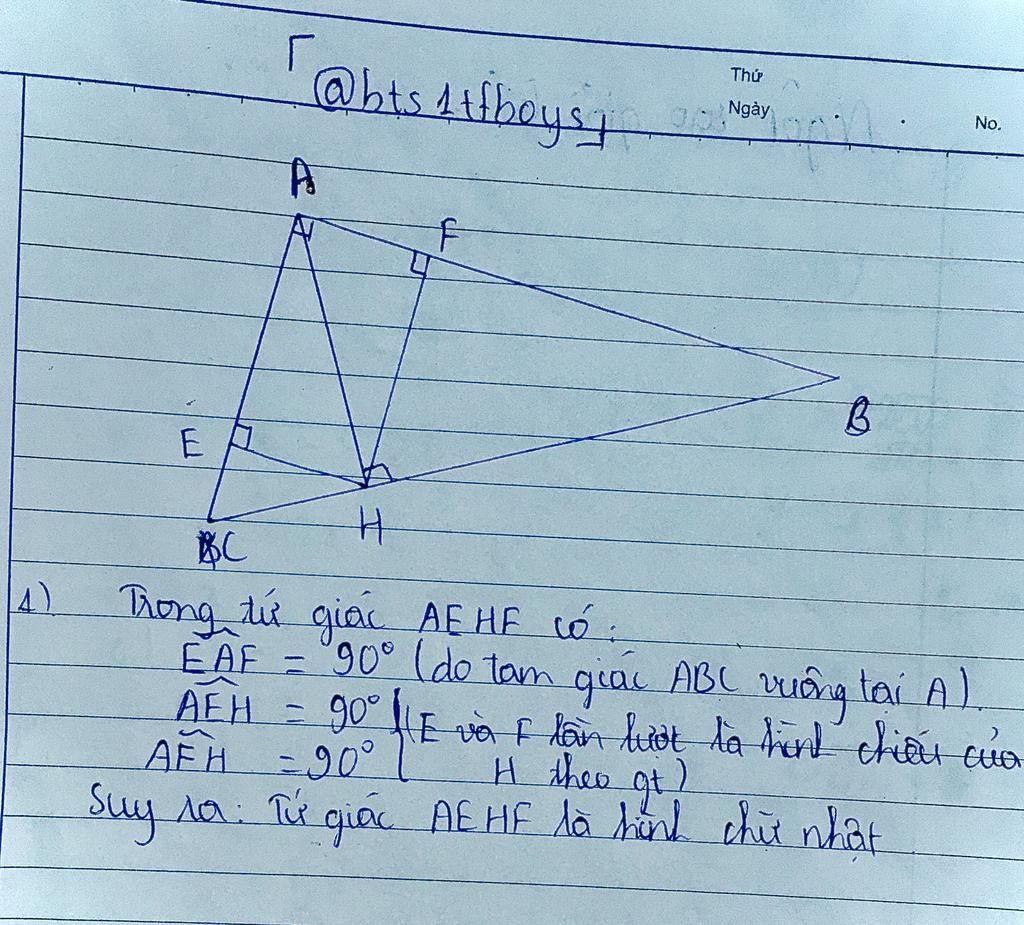 「@bts1tfboys」
Thứ
Ngày
No.
A
F
B
E
H
C
1) Trong tứ giác AEHF có:
EAF = 90° (do tam giác ABC vuông tại A).
AEH = 90°
(E và F lần lượt là hình chiếu của
AEH = 90°
H theo gt)
Suy ra: Tứ giác AEHF là hình chữ nhật